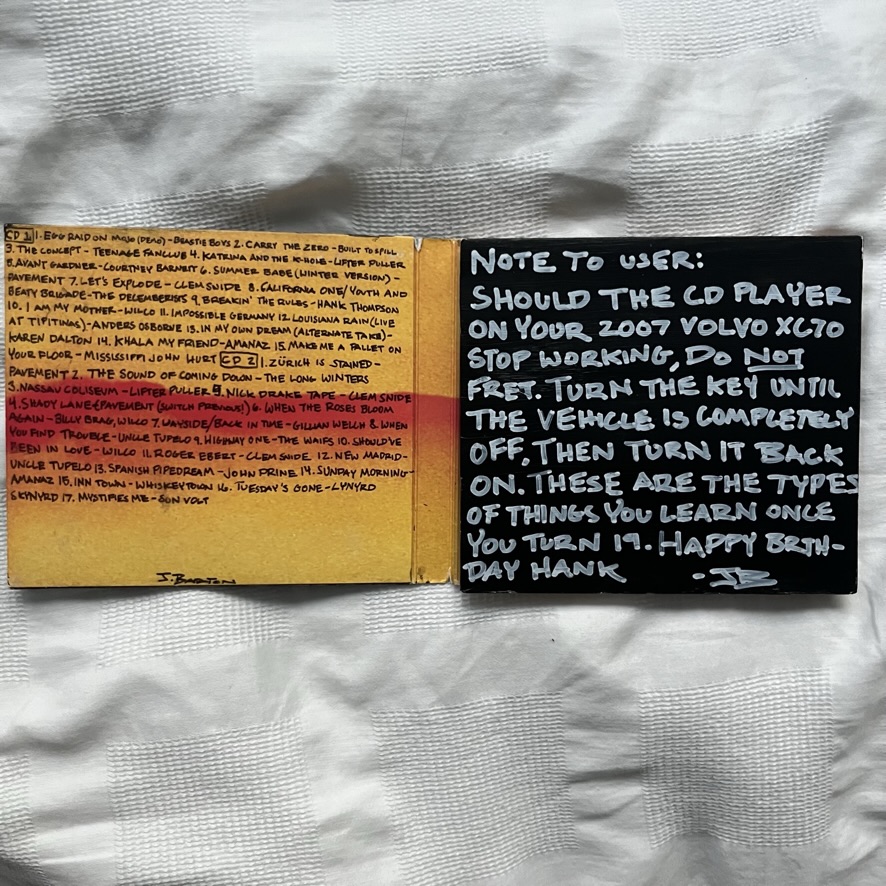 CD 1 1. EGG RAID ON MOJO (DEMO) - BEASTIE BOYS 2. CARRY THE ZERO - BUILT TO SPILL
3. THE CONCEPT - TEENAGE FANCLUB 4. KATRINA AND THE K-HOLE - LIFTER PULLER
5. AVANT GARDNER - COURTNEY BARNETT 6. SUMMER BABE (WINTER VERSION) -
PAVEMENT 7. LET'S EXPLODE - CLEM SNIDE 8. CALIFORNIA ONE/YOUTH AND
BEATY BRIGADE - THE DECEMBERISTS 9. BREAKIN' THE RULES - HANK THOMPSON
10. I AM MY MOTHER - WILCO 11. IMPOSSIBLE GERMANY 12. LOUISIANA RAIN (LIVE
AT TIPITINAS) - ANDERS OSBORNE 13. IN MY OWN DREAM (ALTERNATE TAKE) -
KAREN DALTON 14. KHALA MY FRIEND - AMANAZ 15. MAKE ME A PALLET ON
YOUR FLOOR - MISSISSIPPI JOHN HURT CD 2 1. ZÜRICH IS STAINED -
PAVEMENT 2. THE SOUND OF COMING DOWN - THE LONG WINTERS
3. NASSAU COLISEUM - LIFTER PULLER 5. NICK DRAKE TAPE - CLEM SNIDE
4. SHADY LANE - PAVEMENT (SWITCH PREVIOUS!) 6. WHEN THE ROSES BLOOM
AGAIN - BILLY BRAG, WILCO 7. WAYSIDE/BACK IN TIME - GILLIAN WELCH 8. WHEN
YOU FIND TROUBLE - UNCLE TUPELO 9. HIGHWAY ONE - THE WAIFS 10. SHOULD'VE
BEEN IN LOVE - WILCO 11. ROGER EBERT - CLEM SNIDE 12. NEW MADRID -
UNCLE TUPELO 13. SPANISH PIPEDREAM - JOHN PRINE 14. SUNDAY MORNING -
AMANAZ 15. INN TOWN - WHISKEYTOWN 16. TUESDAY'S GONE - LYNYRD
SKYNYRD 17. MYSTIFIES ME - SON VOLT
J. BURTON
NOTE TO USER:
SHOULD THE CD PLAYER
ON YOUR 2007 VOLVO XC70
STOP WORKING, DO NOT
FRET. TURN THE KEY UNTIL
THE VEHICLE IS COMPLETELY
OFF, THEN TURN IT BACK
ON. THESE ARE THE TYPES
OF THINGS YOU LEARN ONCE
YOU TURN 19. HAPPY BRTH-
DAY HANK -JB